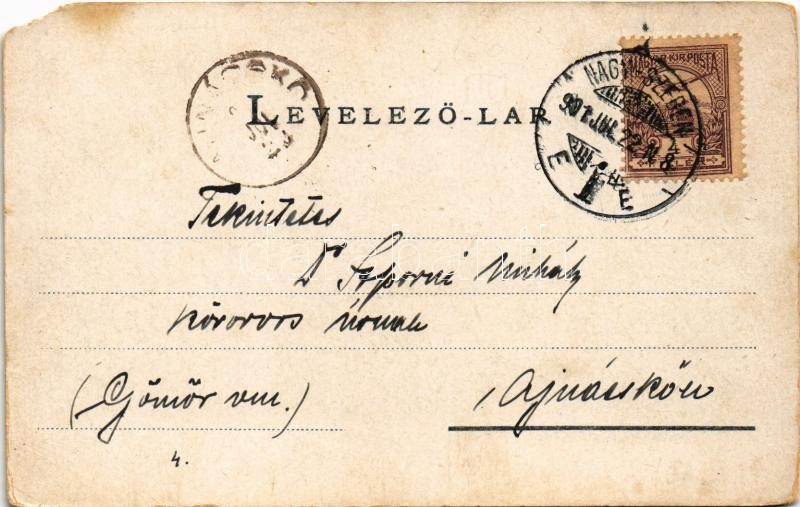 MAGYAR KIR. POSTA
NAGY-SZEBEN
901 JUL. 22
AJNÁCSKŐ
LEVELEZŐ-LAP
Tekintetes
Dr Mihály
körorvos úrnak
(Gömör vm.) Ajnácskőn
4.